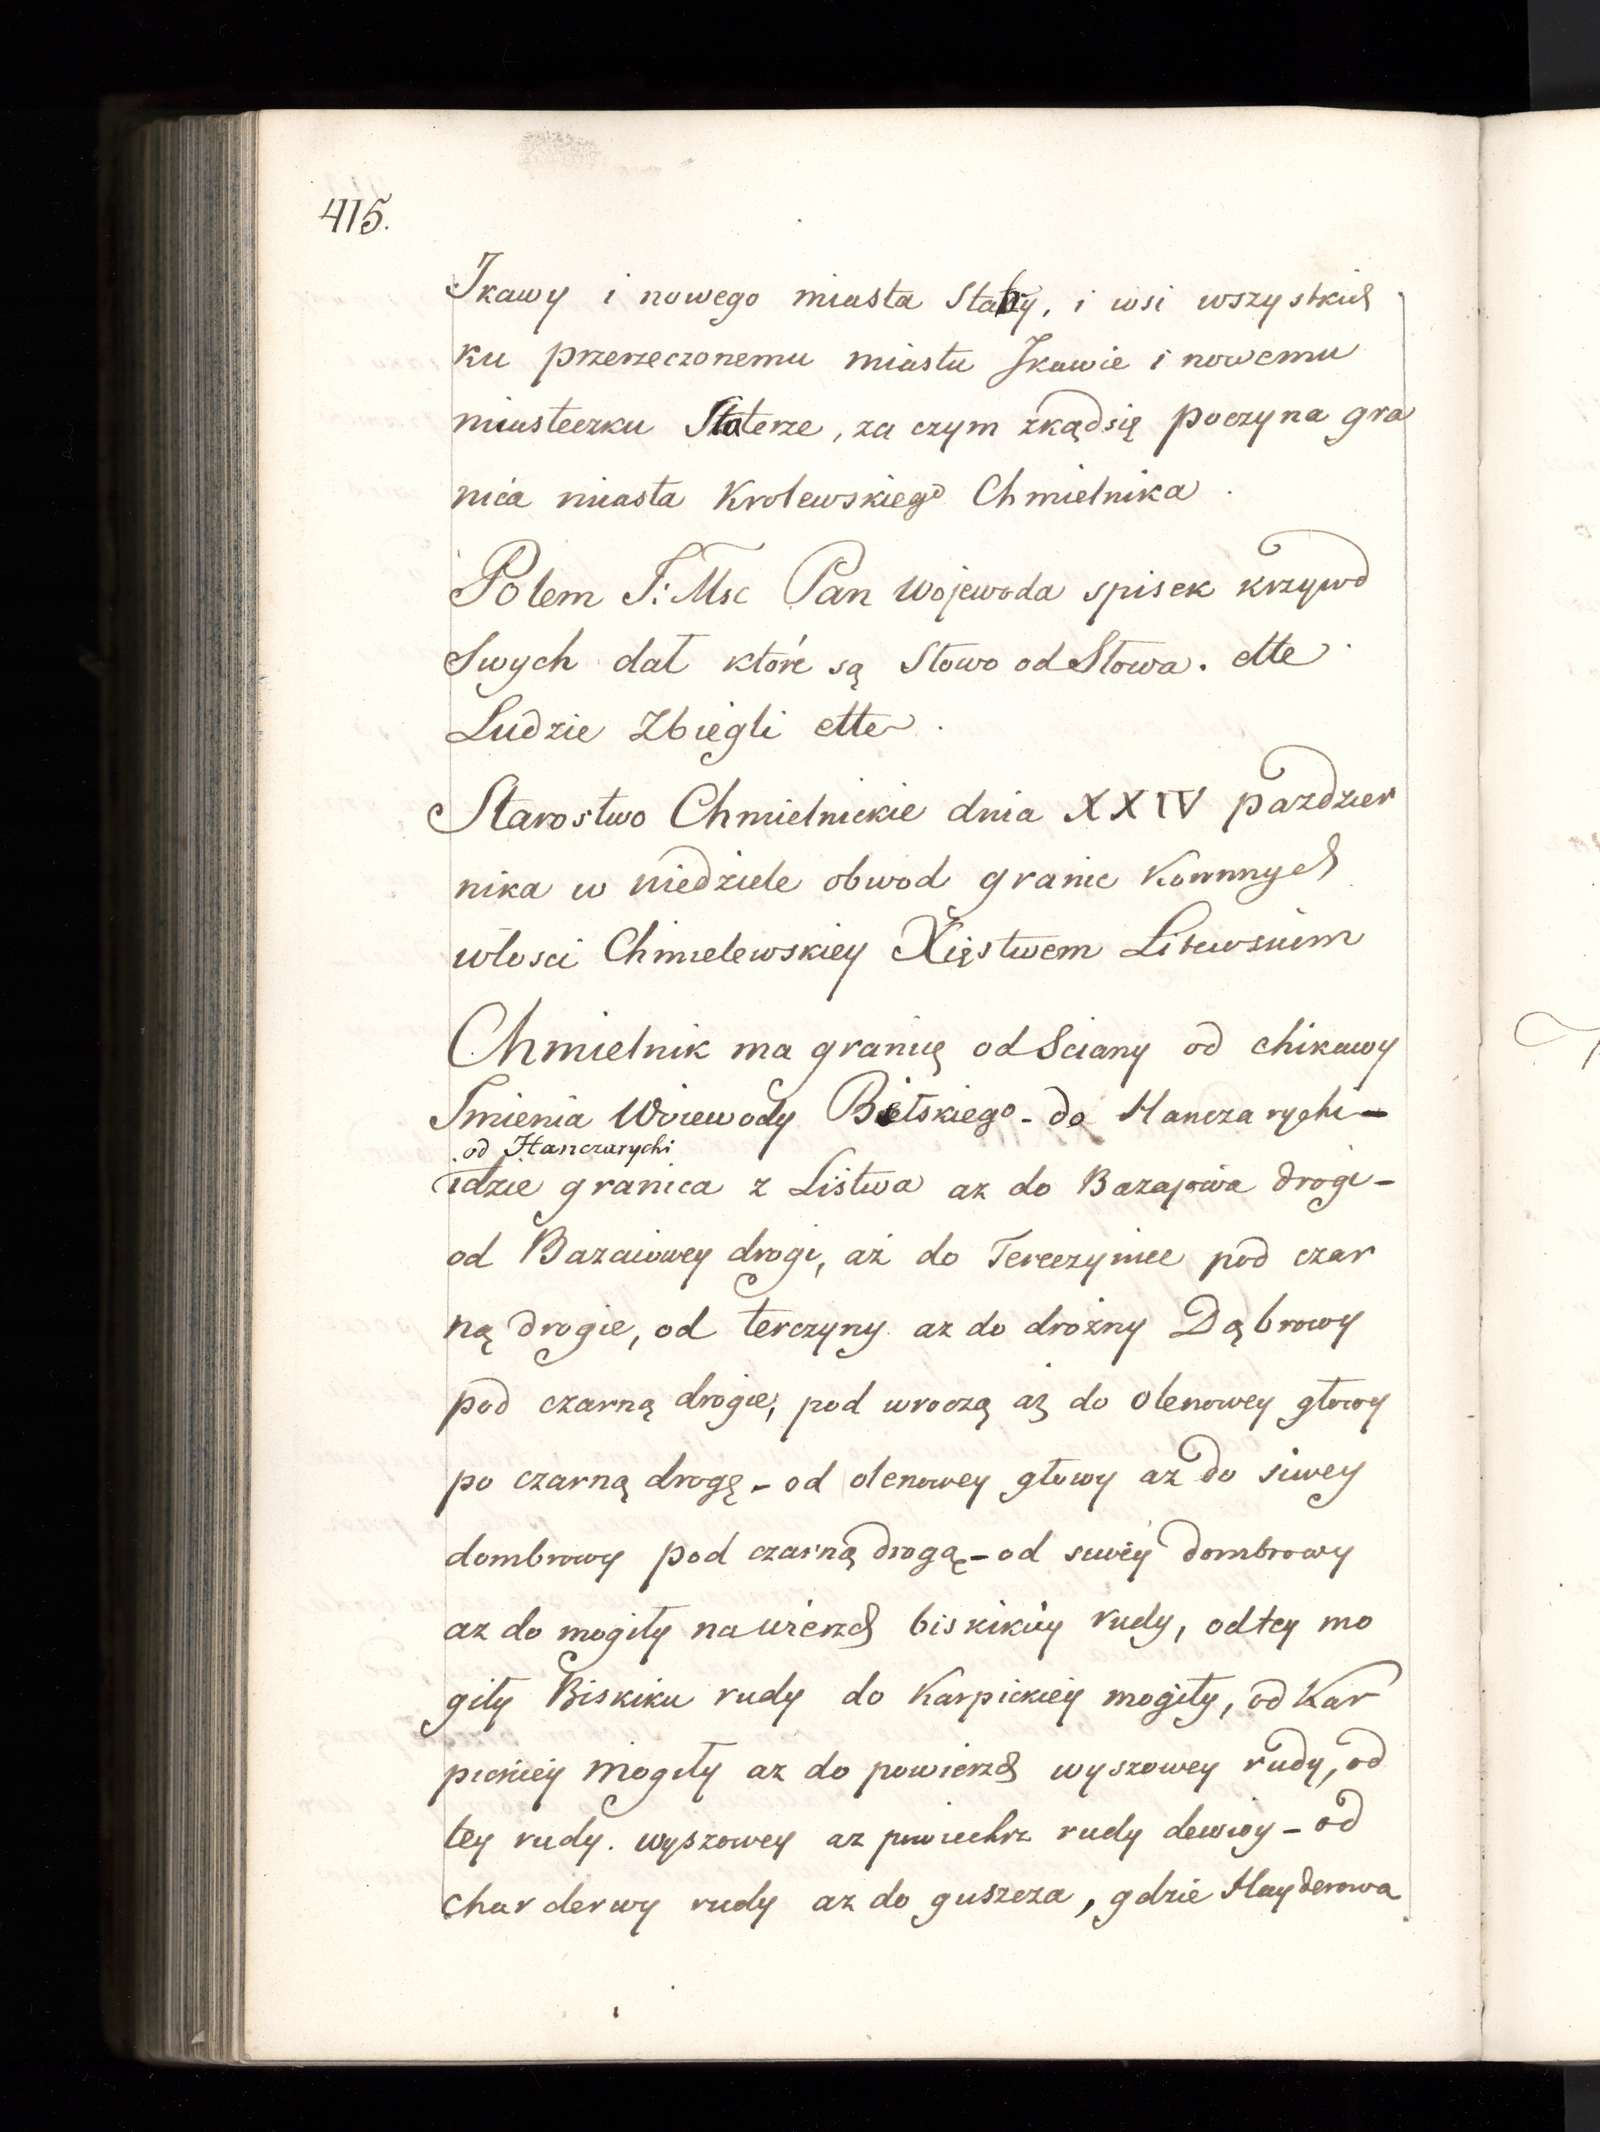 415.
Ikawy i nowego miasta Statry, i wsi wszystkich
ku przerzeczonemu miastu Ikawie i nowemu
miasteczku Staterze, za czym zkądsię poczyna gra
nica miasta Krolewskiego Chmielnika.
Potem J: Msc Pan Wojewoda spisek krzywd
Swych dał które są Słowo od Słowa. ette
Ludzie Zbiegli ette.
Starostwo Chmielnickie dnia XXIV pazdzier
nika w niedziele obwod granic
włosci Chmielewskiey Xięstwem Litewskim
Chmielnik ma granicę od Sciany od chikawy
Imienia Woiewody Bełskiego - do Hanczarychi -
od Hanczarychi
idzie granica z Listwa az do Bazajowia drogi -
od Bazaiowey drogi, aż do Terczynice pod czar
ną drogie, od terczyny az do drożny Dąbrowy
pod czarną drogie, pod wroczą aż do Olenowey głowy
po czarną drogę - od olenowey głowy az do siwey
dombrowy pod czarną drogą - od siwéy dombrowy
az do mogiły na wierzch biskikiiy rudy, od tey mo
giły Biskiku rudy do Karpickiéy mogiły, od Kar
pickiéy mogiły az do powierzch wyszowey rudy, od
tey rudy. wyszowey az powiechrz rudy dewioy - od
char derwy rudy az do guszcza, gdzie Hayderowa